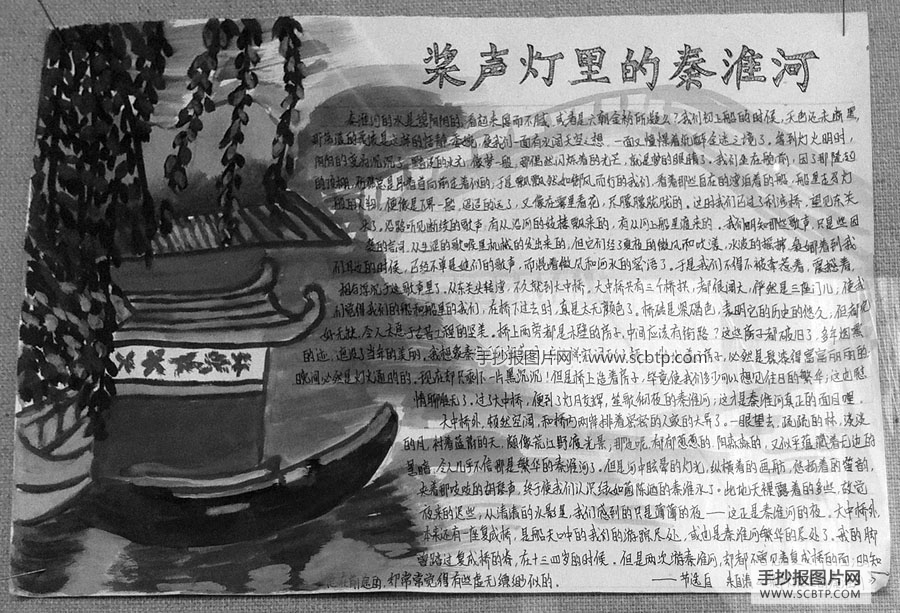 桨声灯里的秦淮河
秦淮河的水是碧阴阴的，看起来厚而不腻，或者是六朝金粉所凝么？我们初上船的时候，天色还未断黑，
那漾漾的柔波是这样的恬静，委婉，使我们一面有水阔天空之想，一面又憧憬着纸醉金迷之境了。等到灯火明时，
阴阴的变为沉沉了：黯淡的水光，像梦一般，那偶然闪烁着的光芒，就是梦的眼睛了。我们坐在舱前，因了那隆起
的顶棚，仿佛总是昂着首向前走着似的，于是飘飘然如御风而行的我们，看着那些自在的湾泊着的船，船里走马灯
般的人物，便像是下界一般，迢迢的远了，又像在雾里看花，尽朦朦胧胧的。这时我们已过了利涉桥，望见东关
头了。沿路听见断续的歌声，有从沿河的妓楼飘来的，有从河上船里度来的。我们明知那些歌声，只是些因
袭的言词，从生涩的歌喉里机械的发出来的，但它们经了夏夜的微风的吹漾，水波的摇拂，袅娜着到我
们耳边的时候，已经不单是她们的歌声，而混着微风和河水的密语了。于是我们不得不被牵惹着，震撼着，
相与浮沉于这歌声里了。从东关头转湾，不久就到大中桥。大中桥共有三个桥拱，都很阔大，俨然是三座门儿；使我
们觉得我们的船和船里的我们，在桥下过去时，真是太无颜色了。桥砖是深褐色，表明它的历史的悠久，但都完
好无缺，令人太息于古昔工程的坚美。桥上两旁都是木壁的房子，中间应该有街路？这些房子都破旧了，多年烟熏
的迹，遮没了当年的美丽。我想象秦淮
房子，必然是髹漆得富富丽丽的
晚间必然是灯火通明的。现在却只剩下一片黑沉沉！但是桥上造着房子，毕竟使我们多少可以想见往日的繁华；这也慰
情聊胜无了。过了大中桥，便到了灯月交辉，笙歌彻夜的秦淮河；这才是秦淮河真正的面目哩。
大中桥外，顿然空阔，和桥内两岸排着密密的人家的大异了。一眼望去，疏疏的林，淡淡
的月，衬着蓝蔚的天，颇像荒江野渡光景，那边呢，郁郁葱葱的，阴森森的，又似乎藏着无边的
黑暗：令人几乎不信那是繁华的秦淮河了。但是河中眩晕着的灯光，纵横着的画舫，悠扬着的笛韵，
夹着那吱吱的胡琴声，终于使我们认识绿如茵陈酒的秦淮水了。此地天裸露着的多些，故觉
夜来的迟些，从清清的水影里，我们感到的只是薄薄的夜——这正是秦淮河的夜。大中桥外，
本来还有一座复成桥，是船夫口中的我们的游踪尽处，或也是秦淮河繁华的尽处了。我的脚
曾踏过复成桥的脊，在十三四岁的时候。但是两次游秦淮河，却都不曾见着复成桥的面，明知
总在前途的，却常常觉得有些虚无缥缈似的。——节选自 朱自清
手抄报图片网 www.scbtp.com
手抄报图片网
WWW.SCBTP.COM